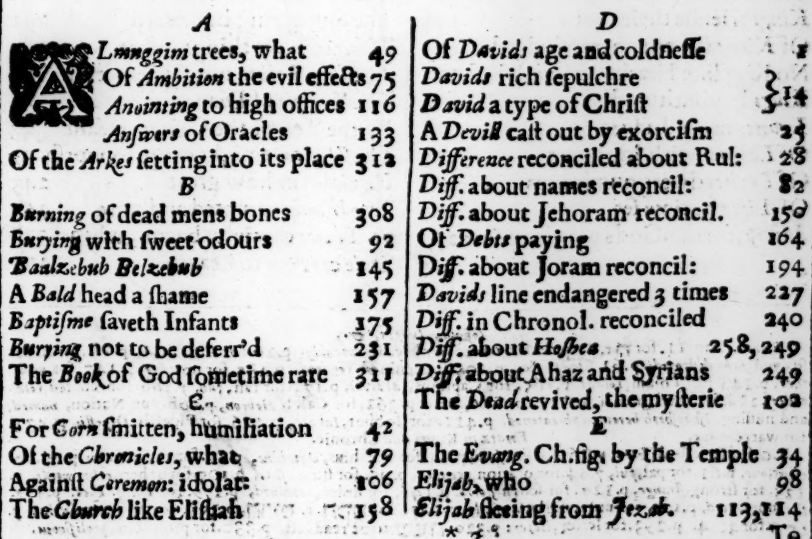 A
ALmuggim trees, what 49
Of Ambition the evil effects 75
Anointing to high offices 116
Anſwers of Oracles 133
Of the Arkes ſetting into its place 312
B
Burning of dead mens bones 308
Burying with ſweet odours 92
Baalzebub Belzebub 145
A Bald head a ſhame 157
Baptiſme ſaveth Infants 175
Burying not to be deferr'd 231
The Book of God ſometime rare 311
C
For Corn ſmitten, humiliation 42
Of the Chronicles, what 79
Againſt Ceremon: idolat: 106
The Church like Eliſhah 158
D
Of Davids age and coldneſſe 1
Davids rich ſepulchre
David a type of Chriſt } 14
A Devill caſt out by exorciſm 25
Difference reconciled about Rul: 28
Diff. about names reconcil: 82
Diff. about Jehoram reconcil. 150
Of Debts paying 164
Diff. about Joram reconcil: 194
Davids line endangered 3 times 227
Diff. in Chronol. reconciled 240
Diff. about Hoſhea 258, 249
Diff. about Ahaz and Syrians 249
The Dead revived, the myſterie 102
E
The Evang. Ch. fig. by the Temple 34
Elijah, who 98
Elijah fleeing from Jezab. 113, 114